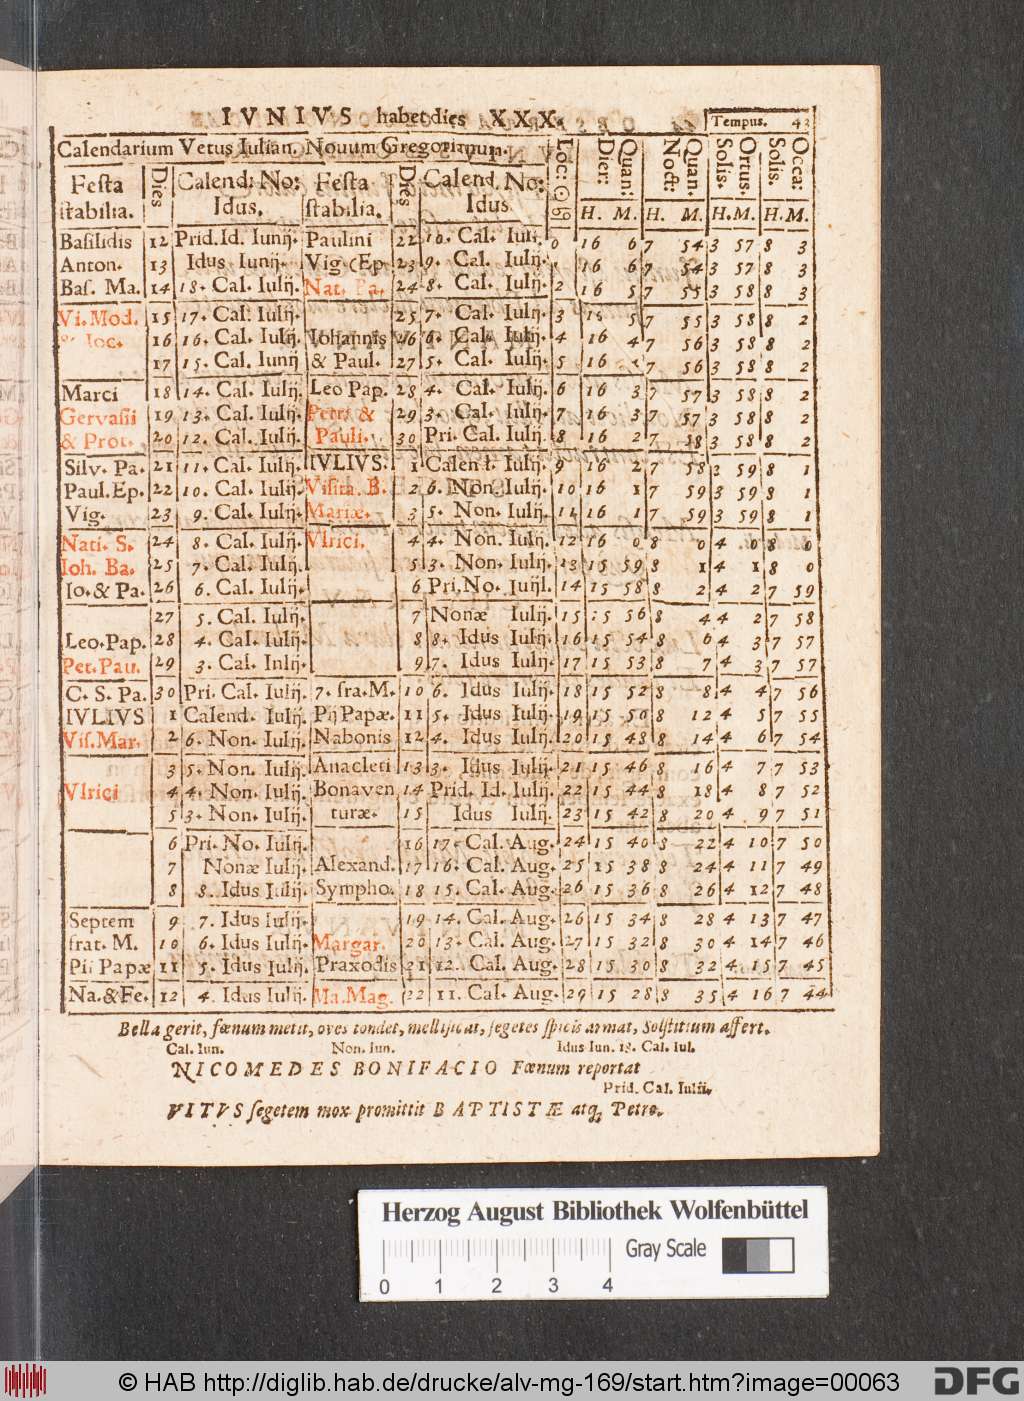 IVNIVS habet dies XXX.
Tempus. 42
Calendarium Vetus Iulian. Novum Gregorianum. Loc: ☉ ♋ Quan: Dier: Quan. Noct: Ortus. Solis. Occa: Solis.
Festa stabilia. Dies Calend: No: Idus. Festa stabilia. Dies Calend. No: Idus H. M. H. M. H. M. H. M.
Basilidis 12 Prid. Id. Iunij. Paulini 22 10. Cal. Iulij. 0 16 6 7 54 3 57 8 3
Anton. 13 Idus Iunij. Vig Ep 23 9. Cal. Iulij. 16 6 7 54 3 57 8 3
Bas. Ma. 14 18. Cal. Iulij. Nat. Ba. 24 8. Cal. Iulij. 2 16 5 7 55 3 58 8 3
Vi. Mod. 15 17. Cal. Iulij. 25 7. Cal. Iulij. 3 16 5 7 55 3 58 8 2
16 16. Cal. Iulij. Iohannis 26 6. Cal. Iulij. 4 16 4 7 56 3 58 8 2
17 15. Cal. Iunij & Paul. 27 5. Cal. Iulij. 5 16 7 56 3 58 8 2
Marci 18 14. Cal. Iulij. Leo Pap. 28 4. Cal. Iulij. 6 16 3 7 57 3 58 8 2
Gervasii 19 13. Cal. Iulij. Petri & 29 3. Cal. Iulij. 7 16 3 7 57 3 58 8 2
& Prot. 20 12. Cal. Iulij. Pauli. 30 Pri. Cal. Iulij. 8 16 2 7 58 3 58 8 2
Silv. Pa. 21 11. Cal. Iulij. IVLIVS. 1 Calend. Iulij. 9 16 2 7 58 2 59 8 1
Paul. Ep. 22 10. Cal. Iulij. Visita. B. 2 6. Non. Iulij. 10 16 1 7 59 3 59 8 1
Vig. 23 9. Cal. Iulij. Mariæ. 3 5. Non. Iulij. 11 16 1 7 59 3 59 8 1
Nati. S. 24 8. Cal. Iulij. Vlrici. 4 4. Non. Iulij. 12 16 0 8 0 4 0 8 0
Ioh. Ba. 25 7. Cal. Iulij. 5 3. Non. Iulij. 13 15 59 8 1 4 1 8 0
Io. & Pa. 26 6. Cal. Iulij. 6 Pri. No. Iuijl. 14 15 58 8 2 4 2 7 59
27 5. Cal. Iulij. 7 Nonæ Iulij. 15 :5 56 8 4 4 2 7 58
Leo. Pap. 28 4. Cal. Iulij. 8 8. Idus Iulij. 16 15 54 8 6 4 3 7 57
Pet. Pau. 29 3. Cal. Inlij. 9 7. Idus Iulij. 17 15 53 8 7 4 3 7 57
C. S. Pa. 30 Pri. Cal. Iulij. 7. fra. M. 10 6. Idus Iulij. 18 15 52 8 8 4 4 7 56
IVLIVS 1 Calend. Iulij. Pij Papæ. 11 5. Idus Iulij. 19 15 50 8 12 4 5 7 55
Vis. Mar. 2 6. Non. Iulij. Nabonis 12 4. Idus Iulij. 20 15 48 8 14 4 6 7 54
3 5. Non. Iulij. Anacleti 13 3. Idus Iulij. 21 15 46 8 16 4 7 7 53
Vlrici 4 4. Non. Iulij. Bonaven 14 Prid. Id. Iulij. 22 15 44 8 18 4 8 7 52
5 3. Non. Iulij. turæ. 15 Idus Iulij. 23 15 42 8 20 4 9 7 51
6 Pri. No. Iulij. 16 17. Cal. Aug. 24 15 40 8 22 4 10 7 50
7 Nonæ Iulij. Alexand. 17 16. Cal. Aug. 25 15 38 8 24 4 11 7 49
8 8. Idus Iulij. Sympho. 18 15. Cal. Aug. 26 15 36 8 26 4 12 7 48
Septem 9 7. Idus Iulij. 19 14. Cal. Aug. 26 15 34 8 28 4 13 7 47
frat. M. 10 6. Idus Iulij. Margar. 20 13. Cal. Aug. 27 15 32 8 30 4 14 7 46
Pii Papæ 11 5. Idus Iulij. Praxodis 21 12. Cal. Aug. 28 15 30 8 32 4 15 7 45
Na. & Fe. 12 4. Idus Iulij. Ma. Mag. 22 11. Cal. Aug. 29 15 28 8 35 4 16 7 44
Bella gerit, fœnum metit, oves tondet, mellificat, segetes spicis armat, Solstitium affert.
Cal. Iun. Non. Iun. Idus Iun. 18. Cal. Iul.
NICOMEDES BONIFACIO Fœnum reportat
Prid. Cal. Iulii.
VITVS segetem mox promittit BAPTISTÆ atq; Petro.
Herzog August Bibliothek Wolfenbüttel
Gray Scale
0 1 2 3 4
© HAB http://diglib.hab.de/drucke/alv-mg-169/start.htm?image=00063
DFG